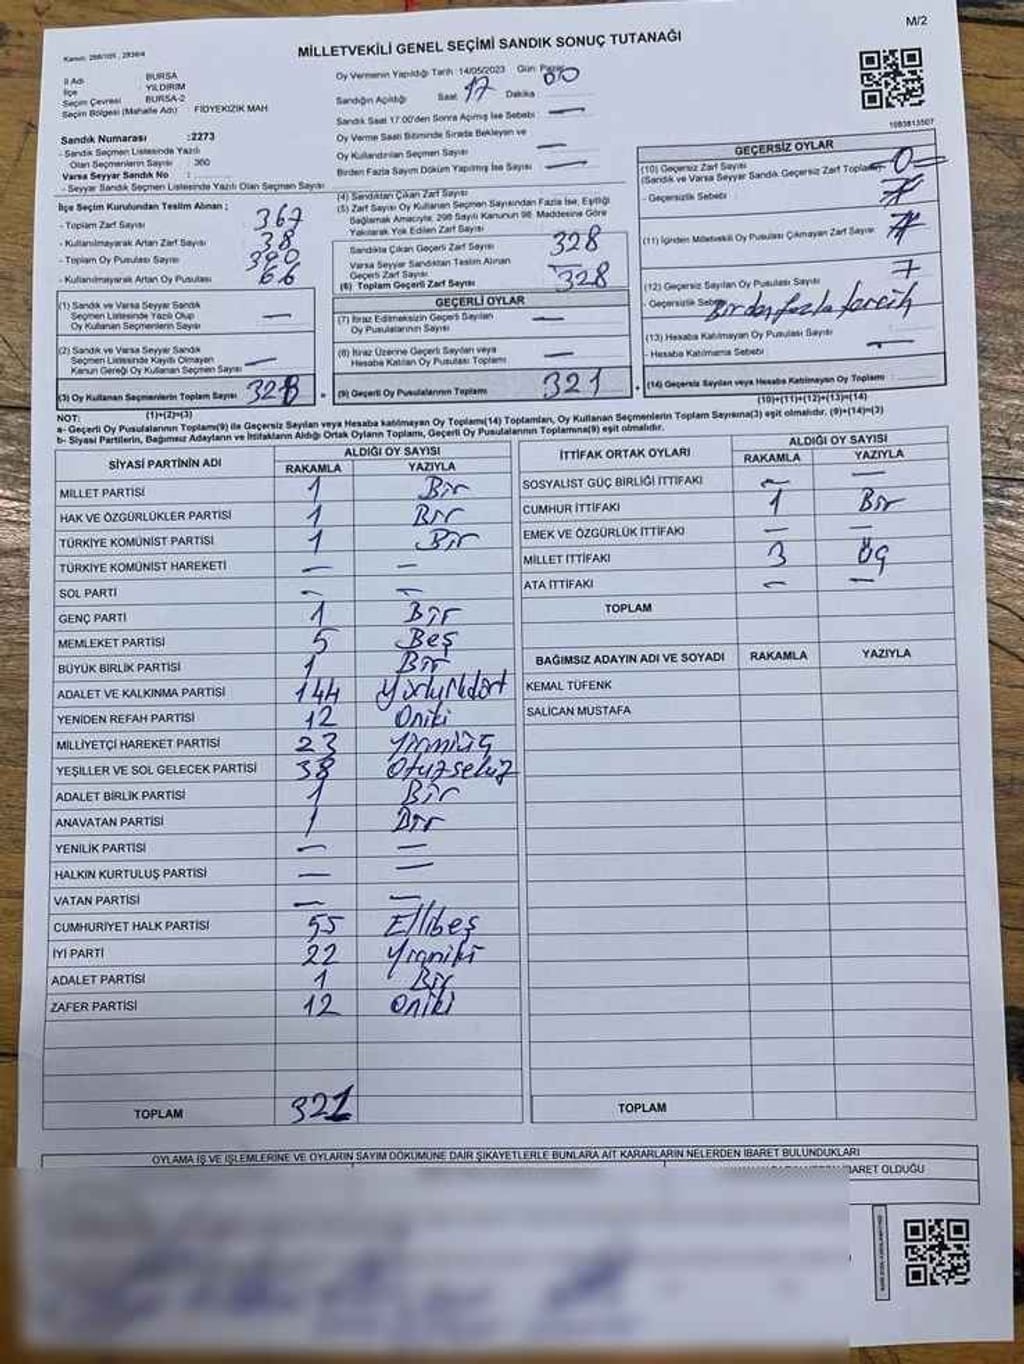 M/2
Kanun: 298/105, 2839/4
MİLLETVEKİLİ GENEL SEÇİMİ SANDIK SONUÇ TUTANAĞI
İl Adı : BURSA
İlçe : YILDIRIM
Seçim Çevresi : BURSA-2
Seçim Bölgesi (Mahalle Adı) : FİDYEKIZIK MAH
Sandık Numarası :2273
- Sandık Seçmen Listesinde Yazılı
Olan Seçmenlerin Sayısı : 360
Varsa Seyyar Sandık No :
- Seyyar Sandık Seçmen Listesinde Yazılı Olan Seçmen Sayısı
Oy Vermenin Yapıldığı Tarih :14/05/2023 Gün: Pazar
Sandığın Açıldığı Saat 17 Dakika 00
Sandık Saat 17.00'den Sonra Açılmış İse Sebebi —
Oy Verme Saati Bitiminde Sırada Bekleyen ve
Oy Kullandırılan Seçmen Sayısı —
Birden Fazla Sayım Döküm Yapılmış İse Sayısı —
1083813507
İlçe Seçim Kurulundan Teslim Alınan ;
- Toplam Zarf Sayısı : 367
- Kullanılmayarak Artan Zarf Sayısı : 38
- Toplam Oy Pusulası Sayısı : 390
- Kullanılmayarak Artan Oy Pusulası : 66
(1) Sandık ve Varsa Seyyar Sandık
Seçmen Listesinde Yazılı Olup
Oy Kullanan Seçmenlerin Sayısı —
(2) Sandık ve Varsa Seyyar Sandık
Seçmen Listesinde Kayıtlı Olmayan
Kanun Gereği Oy Kullanan Seçmen Sayısı —
(3) Oy Kullanan Seçmenlerin Toplam Sayısı 328
(1)+(2)=(3)
(4) Sandıktan Çıkan Zarf Sayısı
(5) Zarf Sayısı Oy Kullanan Seçmen Sayısından Fazla İse, Eşitliği
Bağlamak Amacıyla; 298 Sayılı Kanunun 98. Maddesine Göre
Yakılarak Yok Edilen Zarf Sayısı
Sandıkta Çıkan Geçerli Zarf Sayısı 328
Varsa Seyyar Sandıktan Teslim Alınan
Geçerli Zarf Sayısı —
(6) Toplam Geçerli Zarf Sayısı 328
GEÇERLİ OYLAR
(7) İtiraz Edilmeksizin Geçerli Sayılan
Oy Pusulalarının Sayısı —
(8) İtiraz Üzerine Geçerli Sayılan veya
Hesaba Katılan Oy Pusulası Toplamı —
(9) Geçerli Oy Pusulalarının Toplamı 321
GEÇERSİZ OYLAR
(10) Geçersiz Zarf Sayısı
(Sandık ve Varsa Seyyar Sandık Geçersiz Zarf Toplamı) 0
- Geçersizlik Sebebi :
(11) İçinden Milletvekili Oy Pusulası Çıkmayan Zarf Sayısı
(12) Geçersiz Sayılan Oy Pusulası Sayısı : 7
- Geçersizlik Sebebi Birden fazla tercih
(13) Hesaba Katılmayan Oy Pusulası Sayısı
- Hesaba Katılmama Sebebi : —
(14) Geçersiz Sayılan veya Hesaba Katılmayan Oy Toplamı :
(10)+(11)+(12)+(13)=(14)
NOT:
a- Geçerli Oy Pusulalarının Toplamı(9) ile Geçersiz Sayılan veya Hesaba Katılmayan Oy Toplamı(14) Toplamları, Oy Kullanan Seçmenlerin Toplam Sayısına(3) eşit olmalıdır. (9)+(14)=(3)
b- Siyasi Partilerin, Bağımsız Adayların ve İttifakların Aldığı Ortak Oyların Toplamı, Geçerli Oy Pusulalarının Toplamına(9) eşit olmalıdır.
SİYASİ PARTİNİN ADI ALDIĞI OY SAYISI
RAKAMLA YAZIYLA
MİLLET PARTİSİ 1 Bir
HAK VE ÖZGÜRLÜKLER PARTİSİ 1 Bir
TÜRKİYE KOMÜNİST PARTİSİ 1 Bir
TÜRKİYE KOMÜNİST HAREKETİ — —
SOL PARTİ — —
GENÇ PARTİ 1 Bir
MEMLEKET PARTİSİ 5 Beş
BÜYÜK BİRLİK PARTİSİ 1 Bir
ADALET VE KALKINMA PARTİSİ 144
YENİDEN REFAH PARTİSİ 12 Oniki
MİLLİYETÇİ HAREKET PARTİSİ 23 Yirmiüç
YEŞİLLER VE SOL GELECEK PARTİSİ 38 Otuzsekiz
ADALET BİRLİK PARTİSİ 1 Bir
ANAVATAN PARTİSİ 1 Bir
YENİLİK PARTİSİ — —
HALKIN KURTULUŞ PARTİSİ — —
VATAN PARTİSİ — —
CUMHURİYET HALK PARTİSİ 55 Ellibeş
İYİ PARTİ 22 Yirmiiki
ADALET PARTİSİ 1 Bir
ZAFER PARTİSİ 12 Oniki
TOPLAM 321
İTTİFAK ORTAK OYLARI ALDIĞI OY SAYISI
RAKAMLA YAZIYLA
SOSYALİST GÜÇ BİRLİĞİ İTTİFAKI — —
CUMHUR İTTİFAKI 1 Bir
EMEK VE ÖZGÜRLÜK İTTİFAKI — —
MİLLET İTTİFAKI 3 Üç
ATA İTTİFAKI — —
TOPLAM
BAĞIMSIZ ADAYIN ADI VE SOYADI RAKAMLA YAZIYLA
KEMAL TÜFENK
SALİCAN MUSTAFA
TOPLAM
OYLAMA İŞ VE İŞLEMLERİNE VE OYLARIN SAYIM DÖKÜMÜNE DAİR ŞİKAYETLERLE BUNLARA AİT KARARLARIN NELERDEN İBARET BULUNDUKLARI
İBARET OLDUĞU